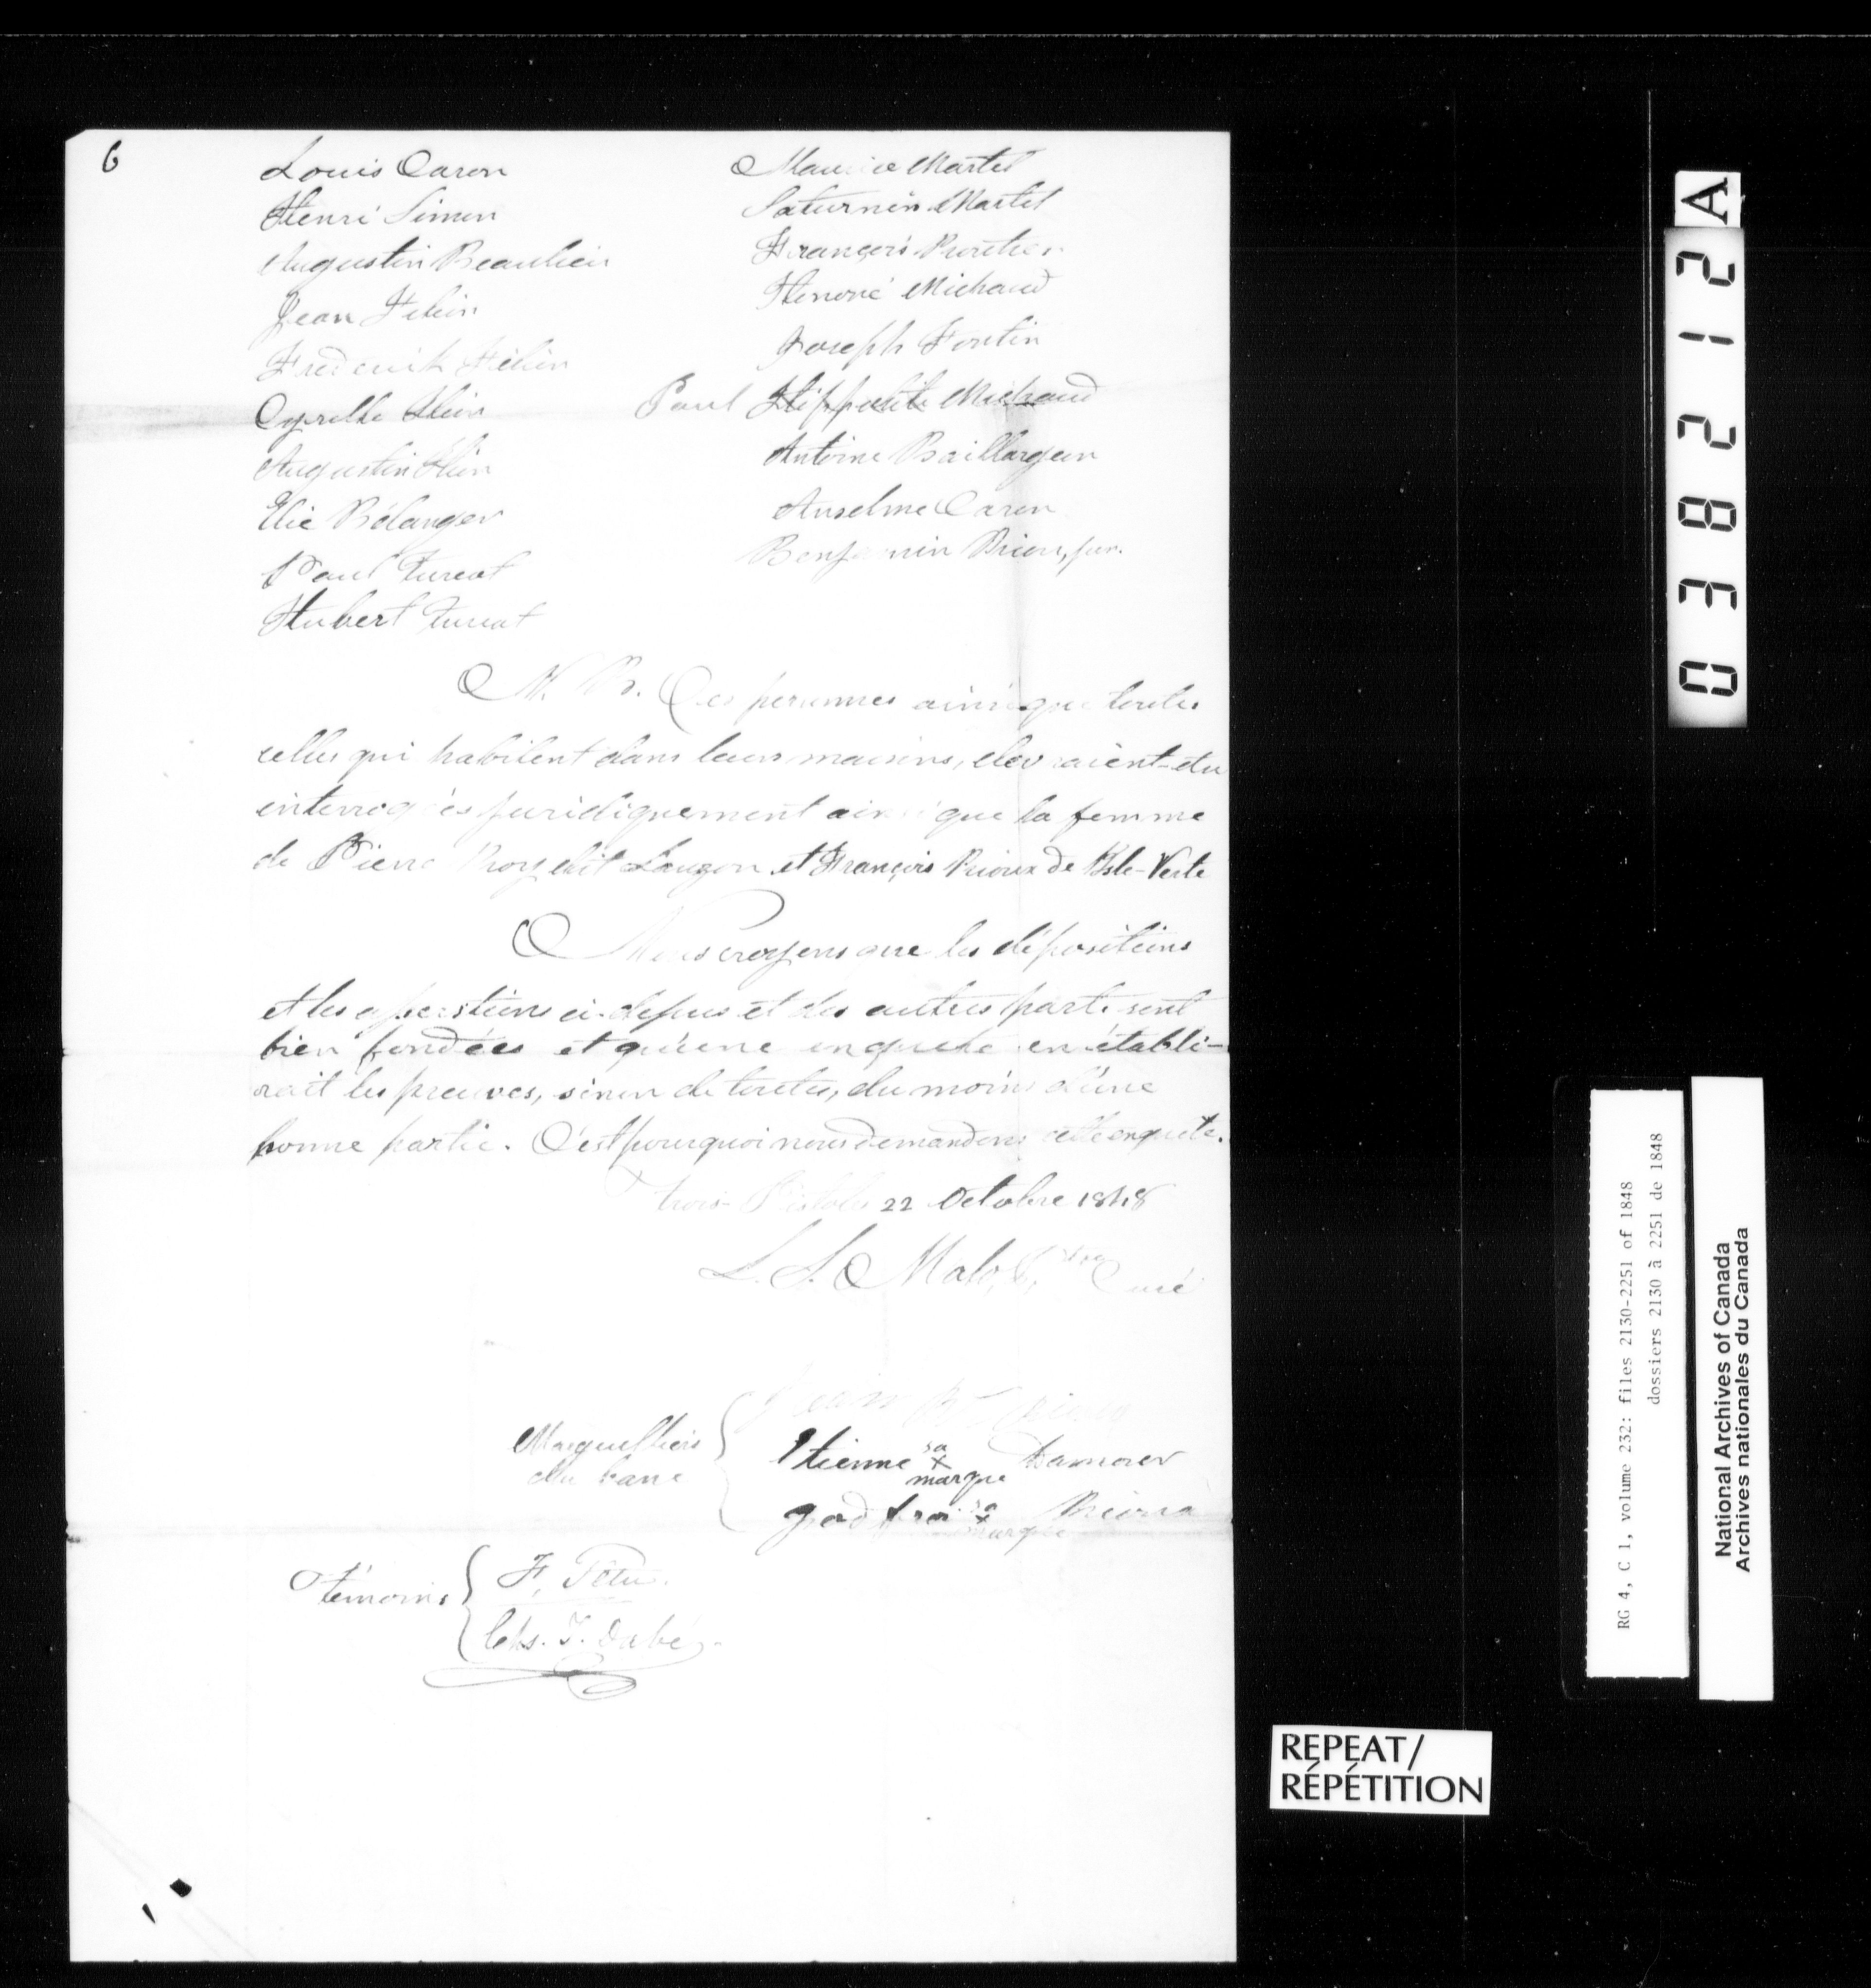 6
Louis Caron
Henri Simon
Augustin Beaulieu
Jean Hélin
Frederick Hélin
Cyrille Hlin
Augustin Hlin
Elie Bélanger
Paul Turcot
Hubert Turcot
Maurice Martel
Saturnin Martel
François
Honoré Michaud
Joseph Fortin
Paul Hippolite Michaud
Antoine Baillargeon
Anselme Caron
Benjamin Riou, jur.
N. B. Ces personnes ainsi que toutes
celles qui habitent dans leurs maisons, devraient-être
interrogées juridiquement ainsi que la femme
de Pierre Roy dit Lauzon et François Rioux de l'Isle-Verte
Nous croyons que les dépositions
et les assertions ci-dessus et des autres parts sont
bien fondées et qu'une enquête en établi-
rait les preuves, sinon de toutes, du moins d'une
bonne partie. C'est pourquoi nous demandons cette enquête.
Trois-Pistoles 22 Octobre 1848
L. S. Malo, Ptre Curé
Marguilliers
du banc
Jean Bte Rioux
Etienne sa x marque Damour
godfroi sa x marque Rioux
Témoins
F. Têtu
Chs. T. Dubé
A
038212
RG 4, C 1, volume 232: files 2130-2251 of 1848
dossiers 2130 à 2251 de 1848
National Archives of Canada
Archives nationales du Canada
REPEAT/
RÉPÉTITION